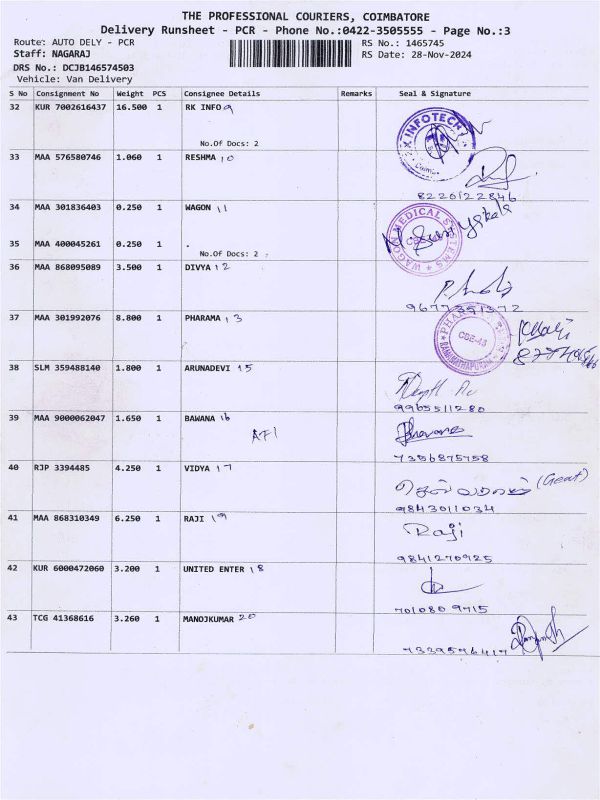 THE PROFESSIONAL COURIERS, COIMBATORE
Delivery Runsheet - PCR - Phone No.:0422-3505555 - Page No.:3
Route: AUTO DELY - PCR RS No.: 1465745
Staff: NAGARAJ RS Date: 28-Nov-2024
DRS No.: DCJB146574503
Vehicle: Van Delivery
S No Consignment No Weight PCS Consignee Details Remarks Seal & Signature
32 KUR 7002616437 16.500 1 RK INFO 9
No.Of Docs: 2
INFOTECH
33 MAA 576580746 1.060 1 RESHMA 10
8220122846
34 MAA 301836403 0.250 1 WAGON 11
WAGON MEDICAL SYSTEMS
35 MAA 400045261 0.250 1 .
No.Of Docs: 2
36 MAA 868095089 3.500 1 DIVYA 12
9677391372
37 MAA 301992076 8.800 1 PHARAMA 13
CBE-45
RAMANATHAPURAM
38 SLM 359488140 1.800 1 ARUNADEVI 15
9965511280
39 MAA 9000062047 1.650 1 BAWANA 16
7356875758
40 RJP 3394485 4.250 1 VIDYA 17
9843011034
41 MAA 868310349 6.250 1 RAJI 19
Raji
9841270925
42 KUR 6000472060 3.200 1 UNITED ENTER 18
701080 9715
43 TCG 41368616 3.260 1 MANOJKUMAR 20
7339596417